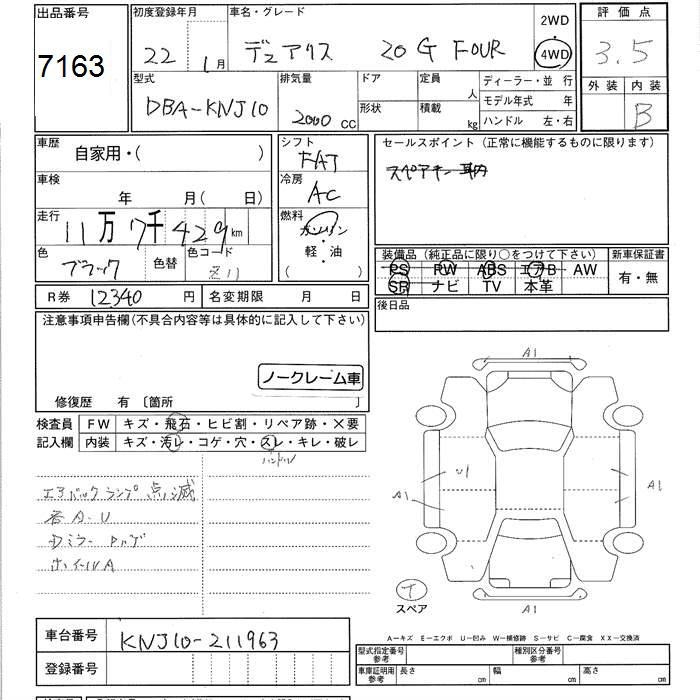 出品番号
7163
初度登録年月
22 1月
車名・グレード
デュアリス 20G FOUR
2WD
4WD
評価点
3.5
外装 内装
B
型式
DBA-KNJ10
排気量
2000 CC
ドア
形状
定員
人
積載
kg
ディーラー・並 行
モデル年式 年
ハンドル 左・右
車歴
自家用・( )
車検
年 月( 日)
走行
11万7千429km
色
ブラック
色替
色コード
シフト
FAT
冷房
AC
燃料
ガソリン
軽・油
( )
セールスポイント (正常に機能するものに限ります)
スペアキー 車内
装備品 (純正品に限り○をつけて下さい)
PS PW ABS エアB AW
SR ナビ TV 本革
新車保証書
有・無
R券 12340 円
名変期限 月 日
後日品
注意事項申告欄(不具合内容等は具体的に記入して下さい)
ノークレーム車
修復歴 有 〔箇所 〕
検査員
記入欄
FW キズ・飛石・ヒビ割・リペア跡・×要
内装 キズ・汚レ・コゲ・穴・スレ・キレ・破レ
ハンドル
エアバックランプ点滅
各A.U
ホイールA
A1
U1
A1
A1
A1
T
スペア
A−キズ E−エクボ U−凹み W−補修跡 S−サビ C−腐食 XX−交換済
車台番号
KNJ10-211963
登録番号
型式指定番号
参考
種別区分番号
参考
車庫証明用
参考
長さ cm
幅 cm
高さ cm